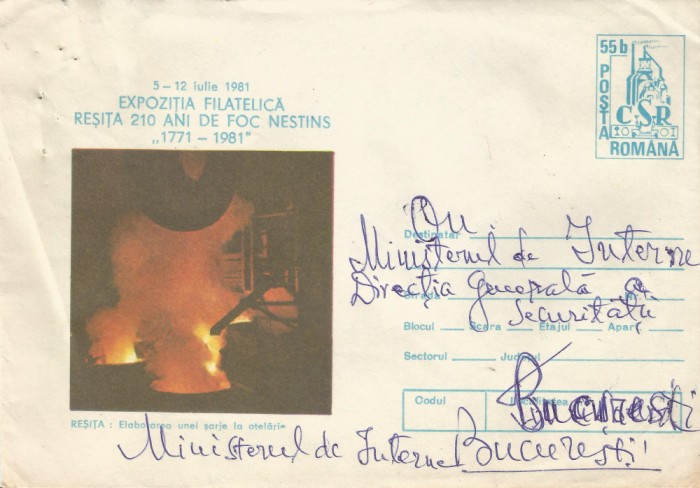 5 – 12 iulie 1981
EXPOZIȚIA FILATELICĂ
REȘIȚA 210 ANI DE FOC NESTINS
„1771 – 1981"
55b
POȘTA
CSR
ROMÂNĂ
Destinatar
Ministerul de Interne
Direcția Generală a
Strada
Securității
Blocul Scara Etajul Apart
Sectorul Județul
Codul Localitatea
București
REȘIȚA : Elaborarea unei șarje la oțelărie
Ministerul de Interne București